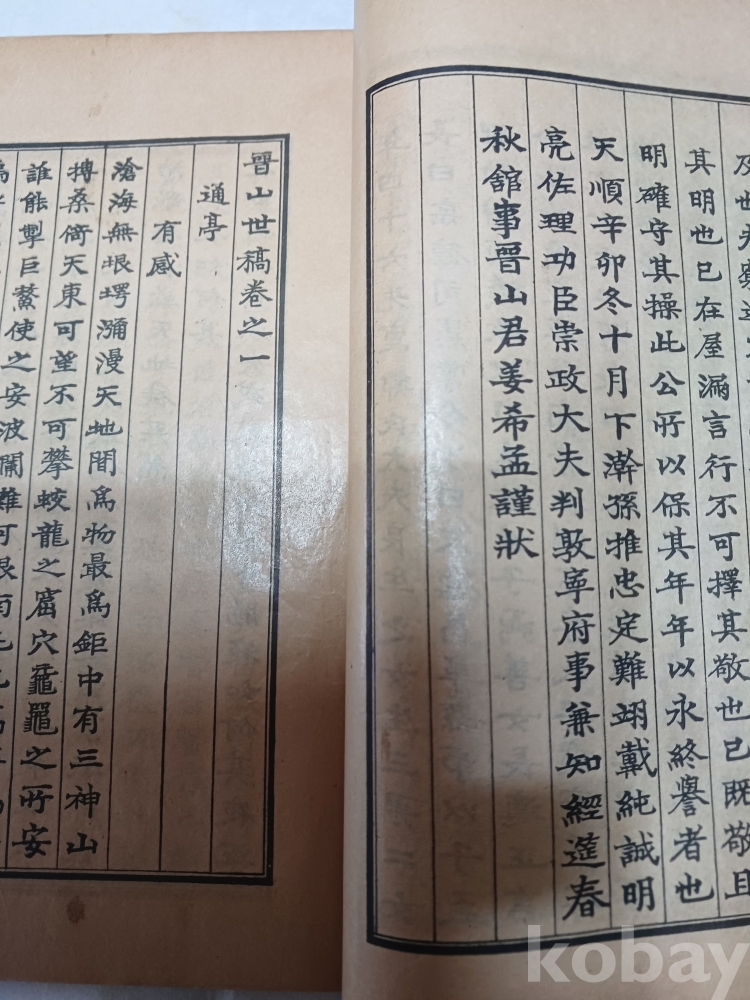 其明也已在屋漏言行不可擇其敬也已既敬且
明確守其操此公所以保其年年以永終譽者也
天順辛卯冬十月下澣孫推忠定難翊戴純誠明
亮佐理功臣崇政大夫判敦寧府事兼知經筵春
秋館事晉山君姜希孟謹狀
晉山世稿卷之一
通亭
有感
滄海無垠堮瀰漫天地間爲物最爲鉅中有三神山
搏桑倚天東可望不可攀蛟龍之窟穴龜黿之所安
誰能掣巨鰲使之安波瀾難可
kobay